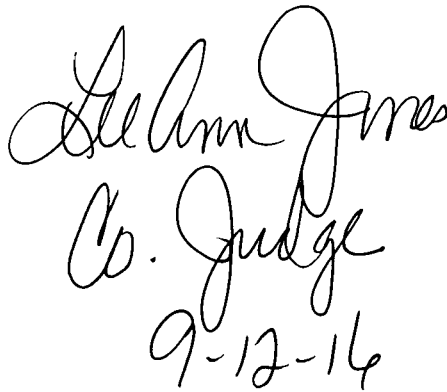 LeeAnn Jones
Co. Judge
9-12-16